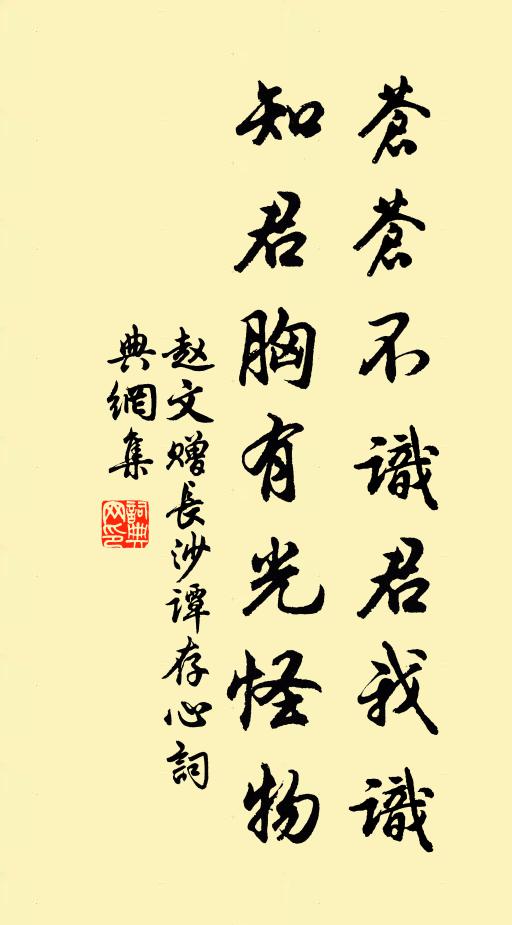 蒼蒼不識君我識
知君胸有光怪物
赵文赠長沙谭存心詞
典網集
詞典网印